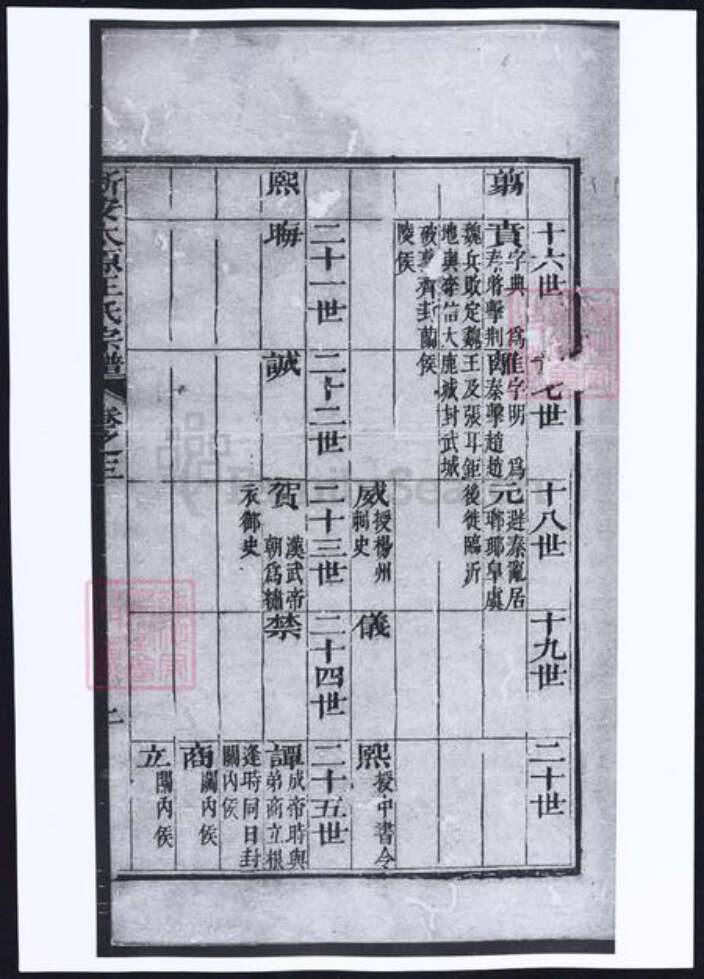 翦
十六世
賁 字典 爲
秦將擊荆
魏兵敗定魏王及張耳鉅
地與李信大
破
齊封
陵侯
十七世
離 字明 爲
秦擊趙趙
鹿城封武城
侯
十八世
元 避秦亂居
瑯琊皐虞
後徙臨沂
威 授楊州
刺史
十九世
儀
二十世
熙 授中書令
熙
二十一世
晦
二十二世
誠
二十三世
賀 漢武帝
朝爲繡
衣御史
二十四世
禁
二十五世
譚 成帝時與
弟商立根
逢時同日封
關內侯
商 關內侯
立 關內侯
新安太原王氏宗譜 卷之三